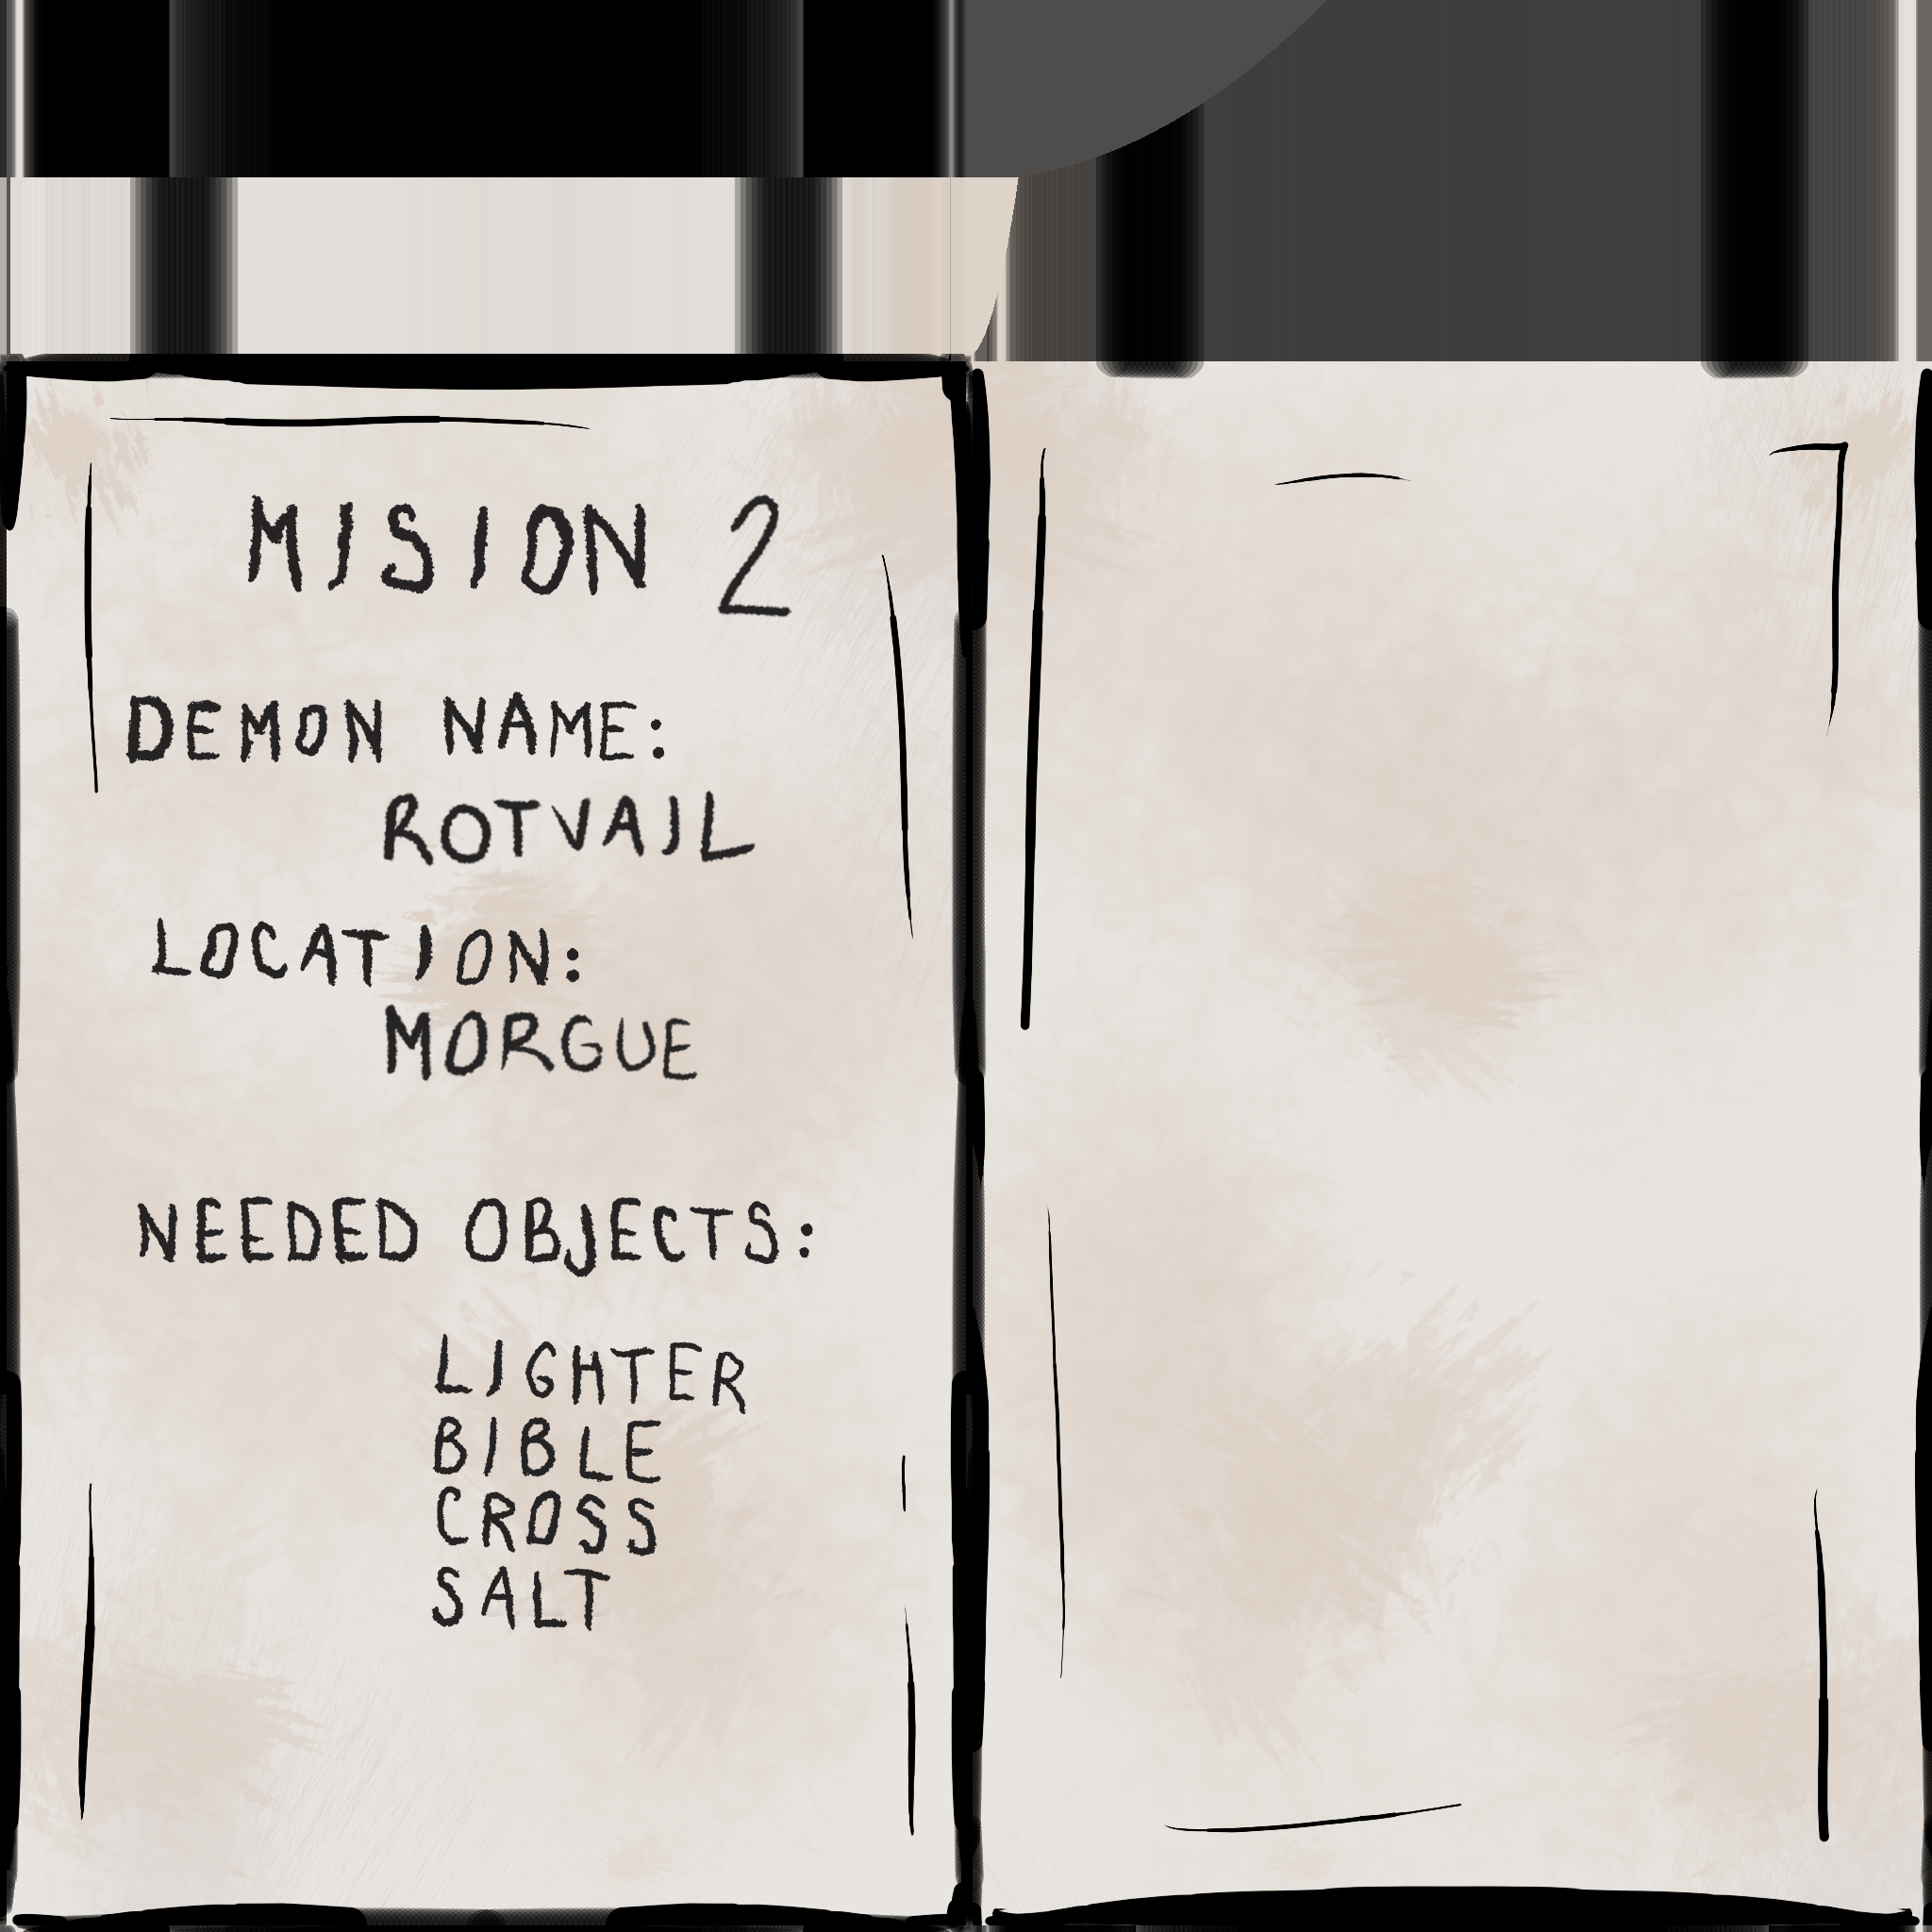 MISION 2
DEMON NAME:
ROTVAIL
LOCATION:
MORGUE
NEEDED OBJECTS:
LIGHTER
BIBLE
CROSS
SALT